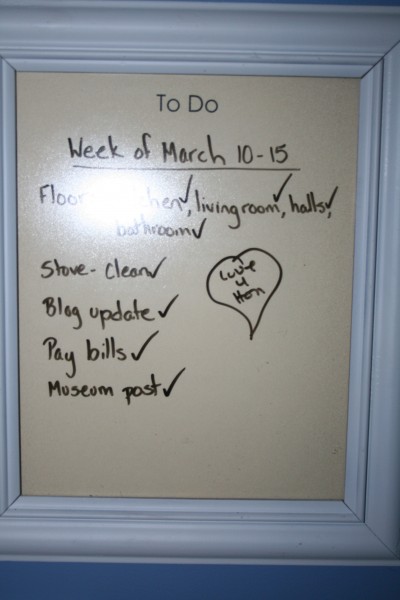 To Do
Week of March 10-15
livingroom✓, halls✓,
bathroom✓
Stove - Clean✓
Blog update ✓
Pay bills ✓
Museum post ✓